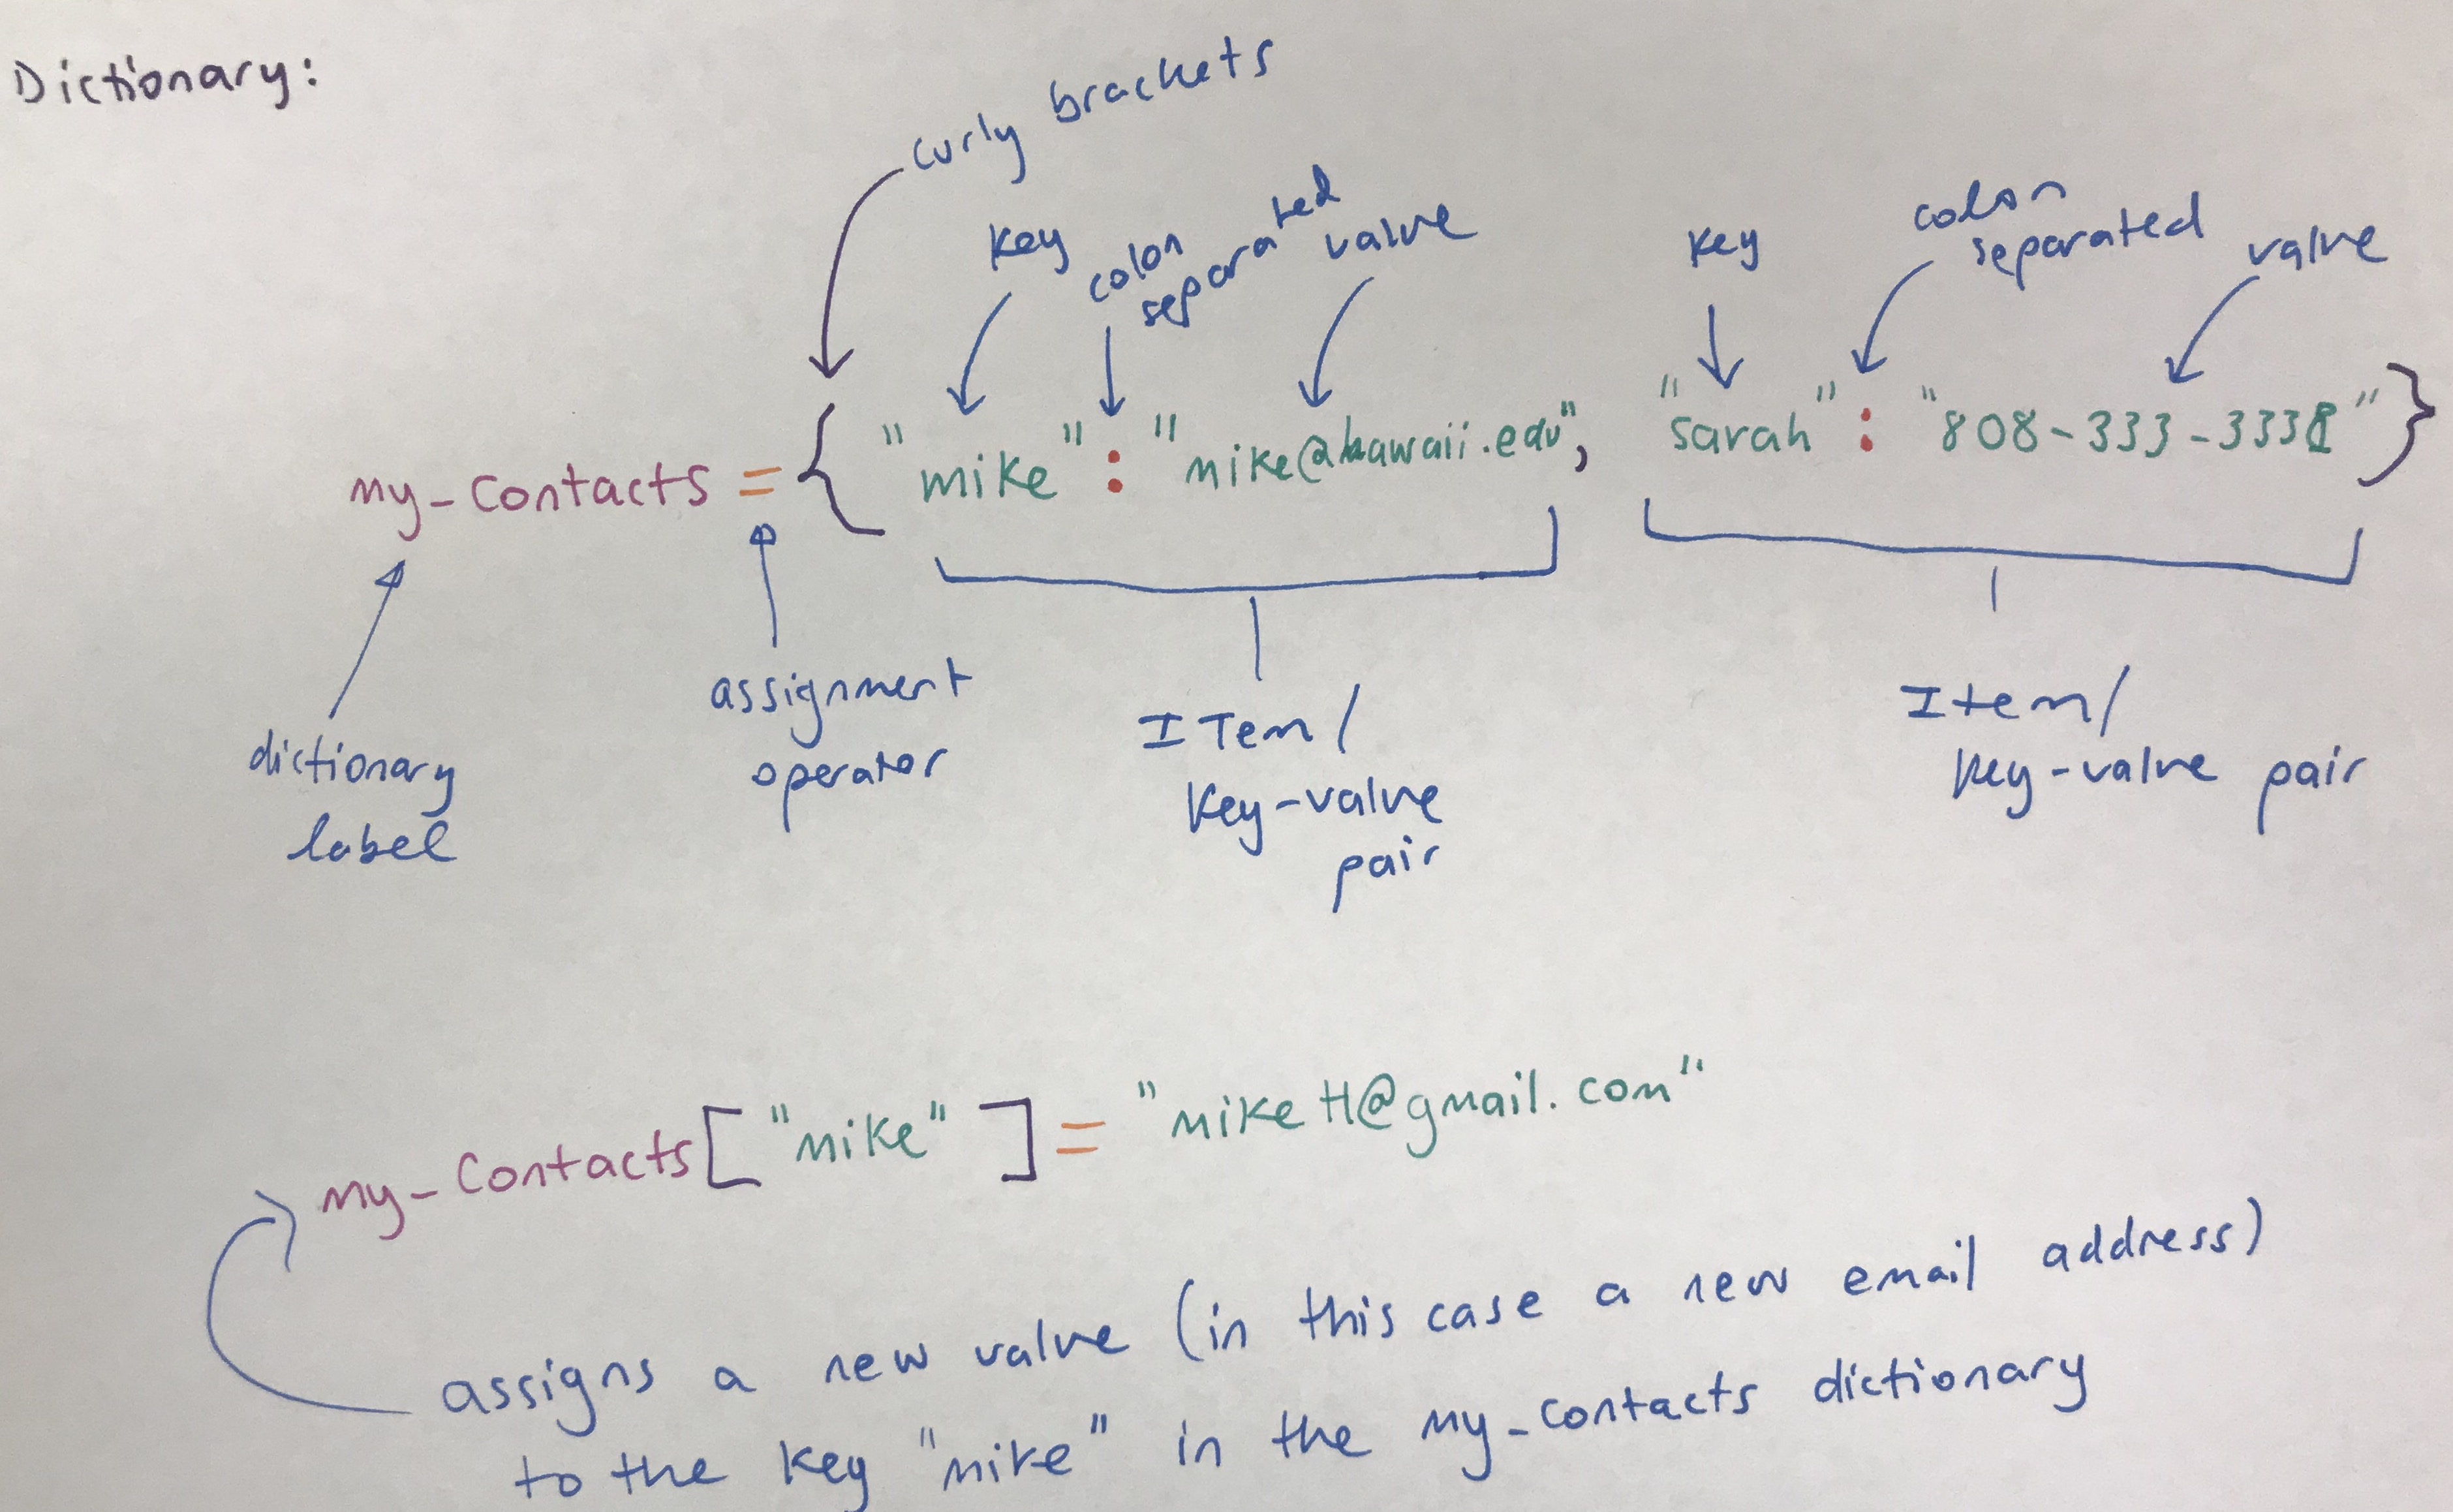 Dictionary:
curly brackets
key
colon
separated
value
key
colon
separated
value
my_contacts = { "mike" : "mike@hawaii.edu", "sarah" : "808-333-
dictionary
label
assignment
operator
ITem/
key-value
pair
Item/
key-value pair
my_contacts["mike"] = "mikeH@gmail.com"
assigns a new value (in this case a new email address)
to the key "mike" in the my_contacts dictionary